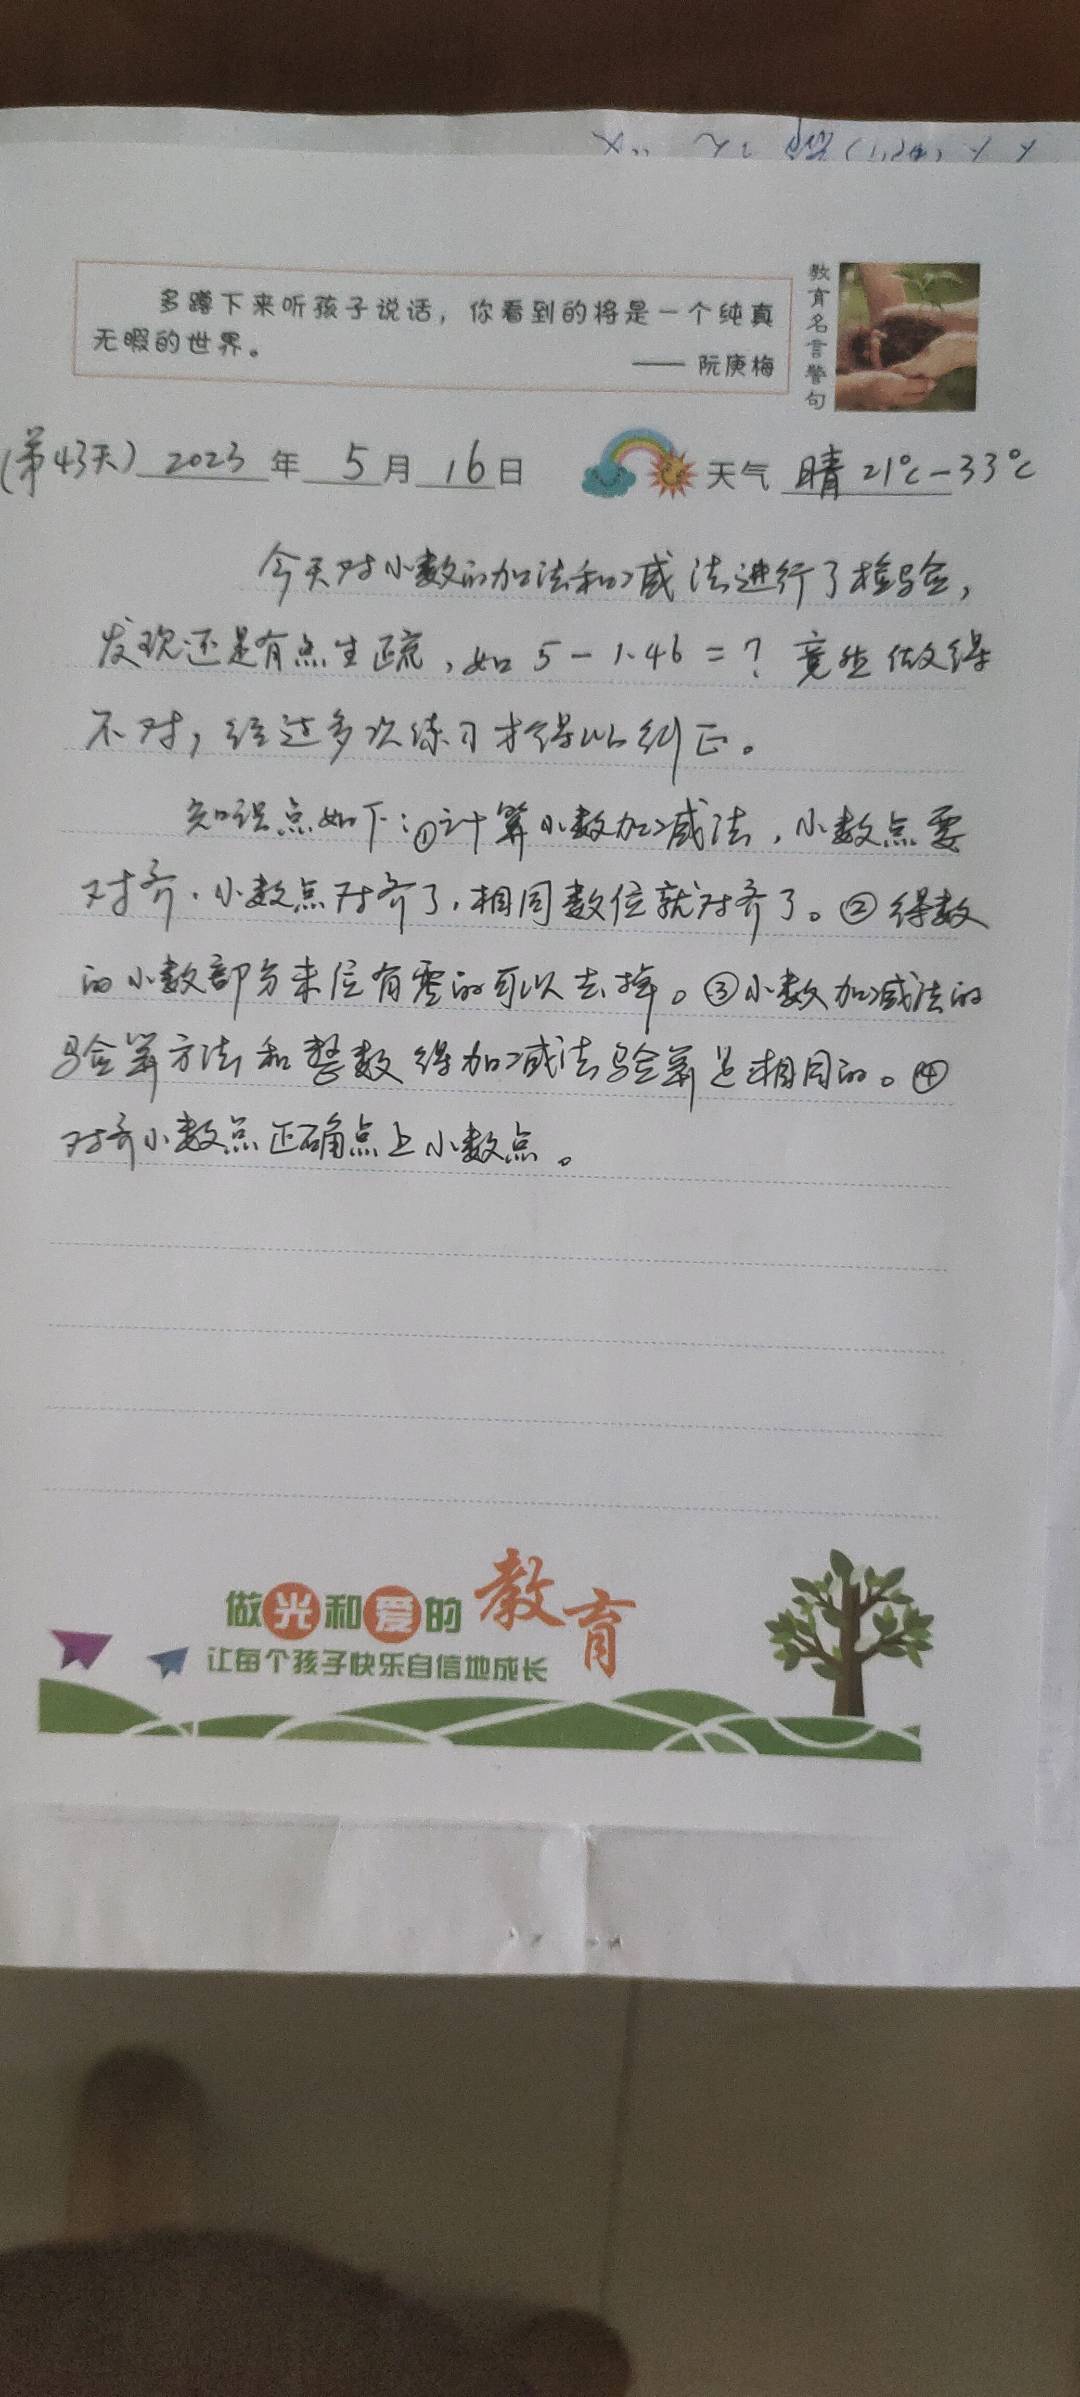 多蹲下来听孩子说话，你看到的将是一个纯真
无暇的世界。
—— 阮庚梅
教育名言警句
(第43天) 2023 年 5 月 16 日 天气 晴 21℃-33℃
今天对小数的加法和减法进行了检验，
发现还是有点生疏，如 5-1.46=？竟然做得
不对，经过多次练习才得以纠正。
知识点如下：①计算小数加减法，小数点要
对齐，小数点对齐了，相同数位就对齐了。②得数
的小数部分末位有零的可以去掉。③小数加减法的
验算方法和整数得加减法验算是相同的。④
对齐小数点正确点上小数点。
做光和爱的教育
让每个孩子快乐自信地成长